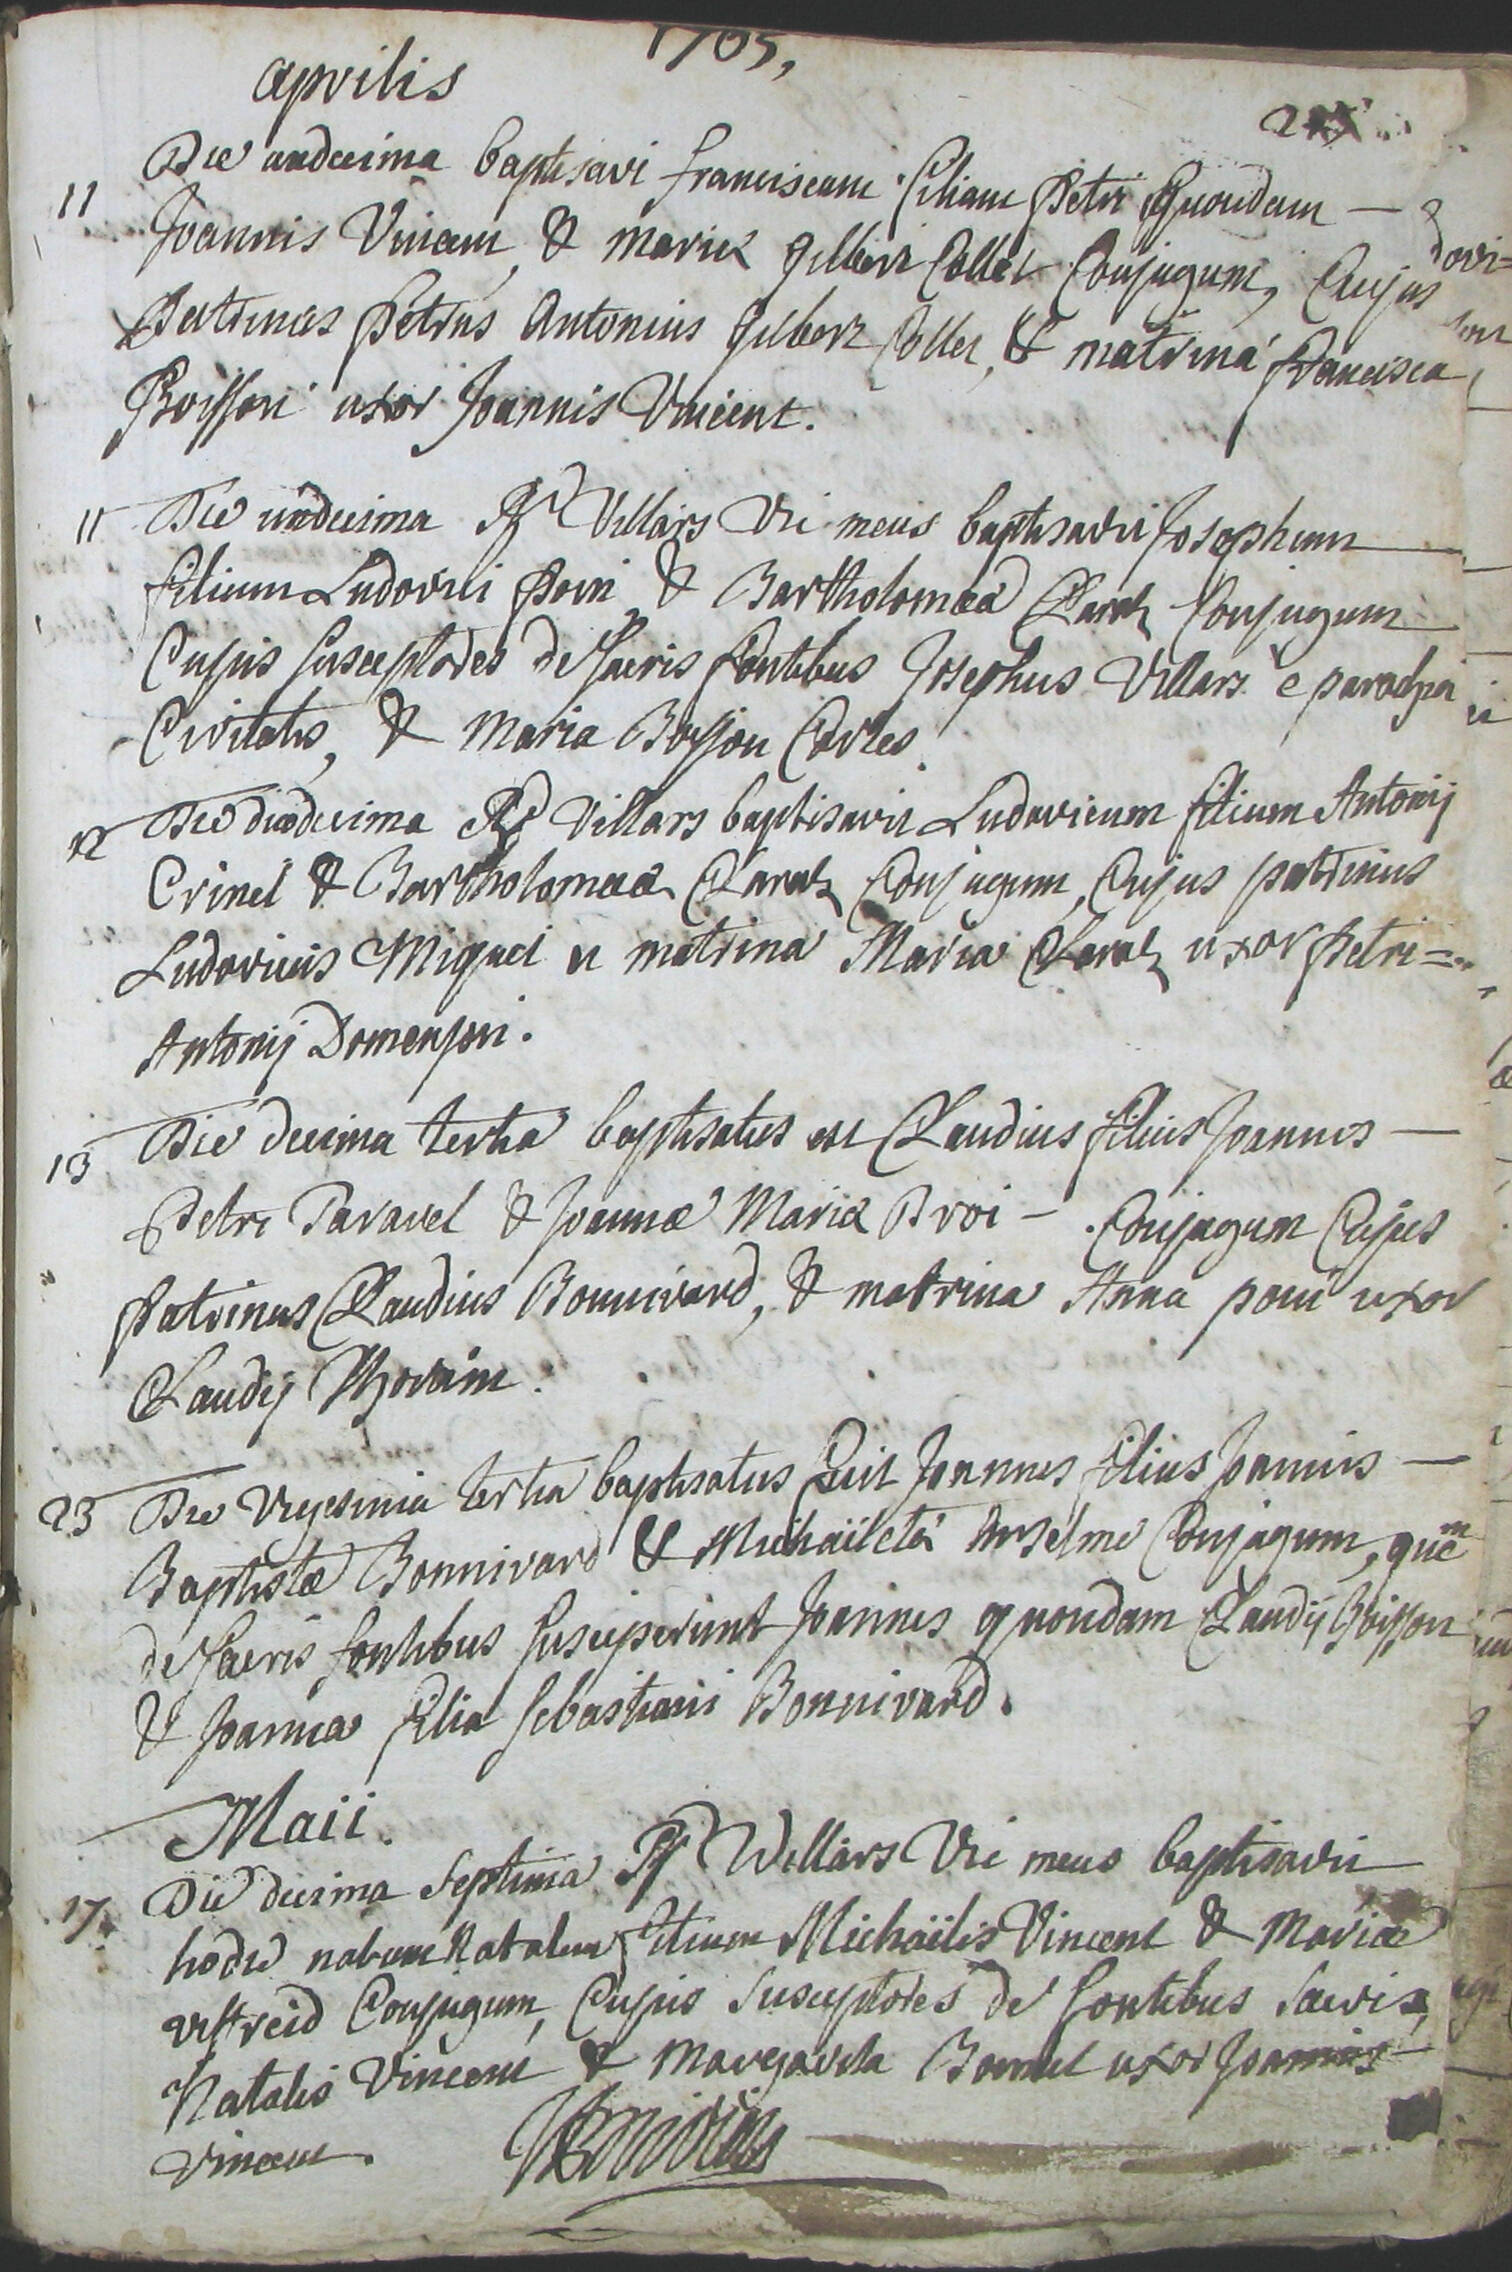 1705,
aprilis
11 Die undecima baptisavi franciscam filiam Petri Quondam —
Joannis Vincent, & mariæ Gilbert Collet Conjugum, Cujus
Patrinus Petrus Antonius Gilbert Collet, & matrina francisca
Boisson uxor Joannis Vincent.
11 Die undecima Rd Villars Vic meus baptisavit Josephum
filium Ludovici & Bartholomææ Claraz Conjugum
Cujus susceptores de sacris fontibus Josephus Villars è parochia
Civitatis, & Maria Boisson
12 Die duodecima Rd Villars baptisavit Ludovicum filium Antonij
Crinel & Bartholomææ Claraz Conjugum, Cujus patrinus
Ludovicus Miquel et matrina Maria Claraz uxor Petri =
Antonij Domenjon.
13 Die decima tertia baptisatus est Claudius filius Joannis —
Petri Paravel & Joannæ Mariæ Broi — Conjugum Cujus
Patrinus Claudius Bonnivard, & matrina Anna uxor
Claudij
23 Die Vigesima tertia baptisatus fuit Joannes filius Joannis —
Baptistæ Bonnivard & Michaëletæ Anselme Conjugum, quem
de sacris fontibus susceperunt Joannes quondam Claudij Boisson
& Joanna filia sebastiani Bonnivard.
Maii.
17 Die decima septima Rd Villars Vic meus baptisavit
hodie natum Natalem filium Michaëlis Vincent & Mariæ
Conjugum, Cujus susceptores de fontibus sacris,
Natalis Vincent & Margarita uxor Joannis
Vincent.